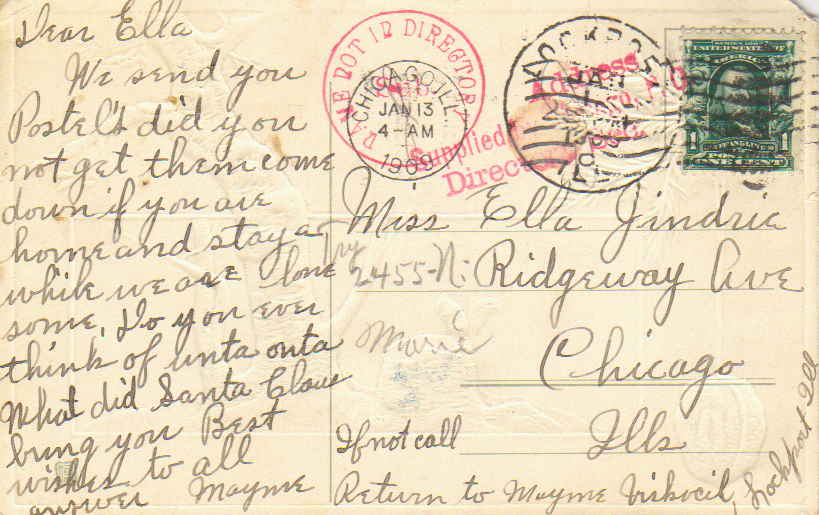 Dear Ella
We send you
Postel's did you
not get them come
down if you are
home and stay a
while we are lone
some. Do you ever
think of unta onta
What did Santa Claus
bring you Best
wishes to all
answer Mayme
NAME NOT IN DIRECTORY
CHICAGO, ILL.
JAN 13
4-AM
1909
LOCKPORT
JAN
Address
Supplied
UNITED STATES OF AMERICA
1
ONE CENT
Miss Ella Jindric
Try
2455-N: Ridgeway Ave
Marie
Chicago
Ills
If not call
Return to Mayme Viskocil, Lockport Ill